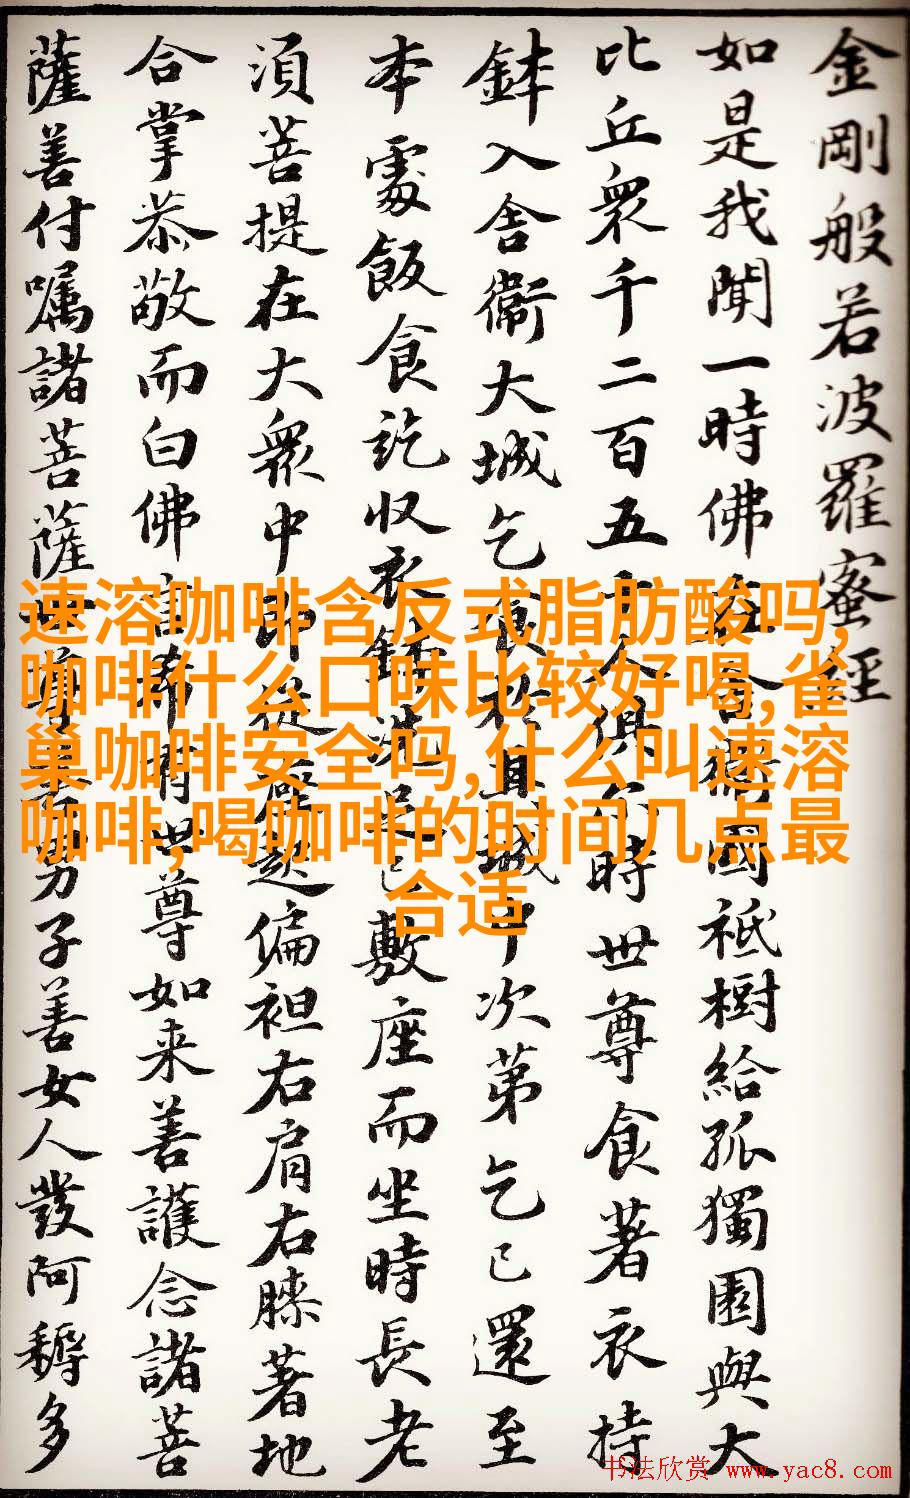 金剛般若波羅蜜經
如是我聞一時佛在舍衛國祇樹給孤獨園與大
比丘眾千二百五十人俱尒時世尊食著衣持
鉢入舍衛大城乞食於其城中次第乞已還至
本處飯食訖收衣鉢洗足已敷座而坐時長老
須菩提在大衆中即從座起偏袒右肩右膝著地
合掌恭敬而白佛言希有世尊如来善護念諸菩
薩善付囑諸菩薩世尊善男子善女人發阿耨多
速溶咖啡含反式脂肪酸吗,
咖啡什么口味比较好喝,雀
巢咖啡安全吗,什么叫速溶
咖啡,喝咖啡的时间几点最
合适
书法欣赏 www.yac8.com